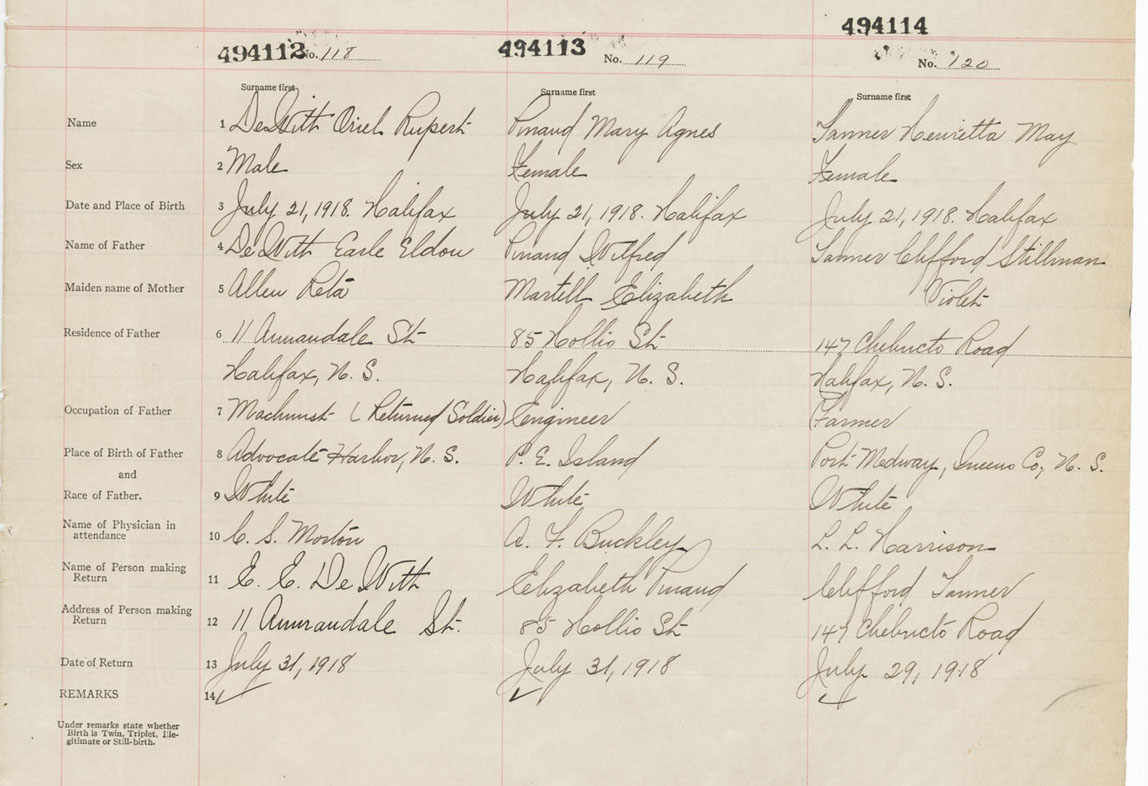 494112 No. 118 494113 No. 119 494114 No. 120
Surname first Surname first Surname first
Name 1 DeWith Oriel Rupert Pinaud Mary Agnes Tanner Henrietta May
Sex 2 Male Female Female
Date and Place of Birth 3 July 21, 1918. Halifax July 21, 1918. Halifax July 21, 1918. Halifax
Name of Father 4 DeWith Earle Eldon Pinaud Wilfred Tanner Clifford Stillman
Maiden name of Mother 5 Allen Reta Martell Elizabeth Violet
Residence of Father 6 11 Annandale St 85 Hollis St 147 Chebucto Road
Halifax, N. S. Halifax, N. S. Halifax, N. S.
Occupation of Father 7 Machinist (Returned Soldier) Engineer Farmer
Place of Birth of Father 8 Advocate Harbor, N. S. P. E. Island Port Medway, Queens Co, N. S.
and
Race of Father. 9 White White White
Name of Physician in
attendance 10 C. S. Morton A. F. Buckley L. L. Harrison
Name of Person making
Return 11 E. E. DeWith Elizabeth Pinaud Clifford Tanner
Address of Person making
Return 12 11 Annandale St. 85 Hollis St 147 Chebucto Road
Date of Return 13 July 31, 1918 July 31, 1918 July 29, 1918
REMARKS 14
Under remarks state whether
Birth is Twin, Triplet, Ille-
gitimate or Still-birth.